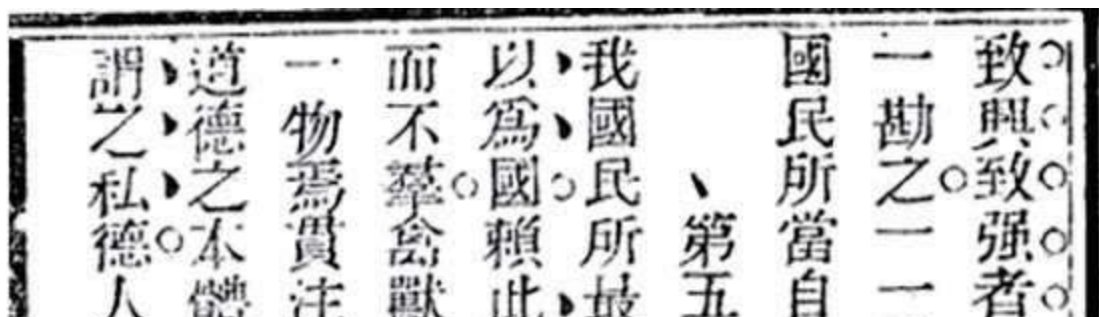 致興致强者
一勘之一一
國民所當自
第五
我國民所最
以爲國賴此
而不羣禽獸
一物焉貫注
道德之本體
謂之私德人